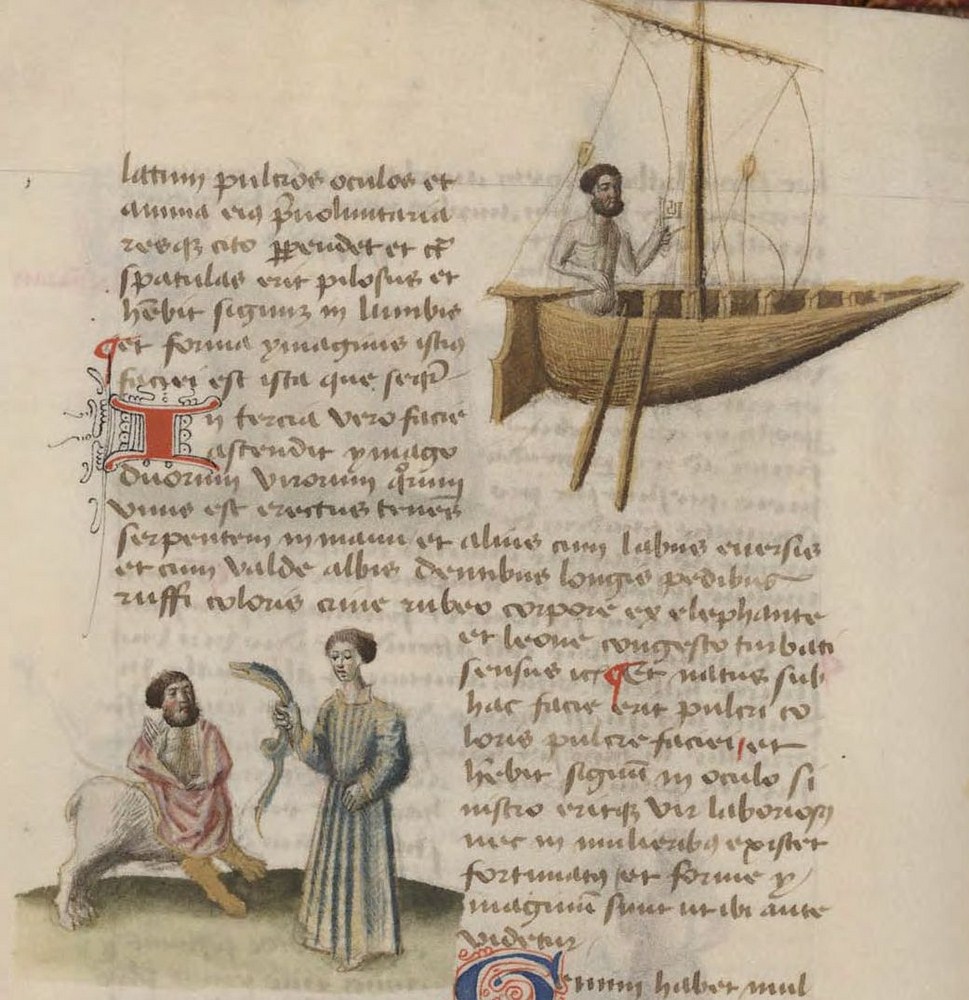 latum pulcros oculos et
anima eiꝯ p̄uoluntaria
resqꝫ cito ꝑpendet et cͣ
spatulas erit pilosus et
hēbit signuꝫ in lumbis
et forma ymaginis istiꝯ
faciei est ista que seqr̄
In tercia vero facie
ascendit ymago
duorum virorum quͦrum
vnus est erectus tenens
serpentem in manu et alius cum labiis euersis
et cum valde albis dentibus longis pedibus
ruffi coloris crine rubeo corpore ex elephante
et leone congesto turbati
sensus Et natus sub
hac facie erit pulcri co
loris pulcre faciei et
hēbit signū in oculo si
nistro eritqꝫ vir laboriosꝯ
nec in mulieribꝯ existet
fortunatꝯ et forme y
maginū sunt ut ibi ante
videtur
habet mul